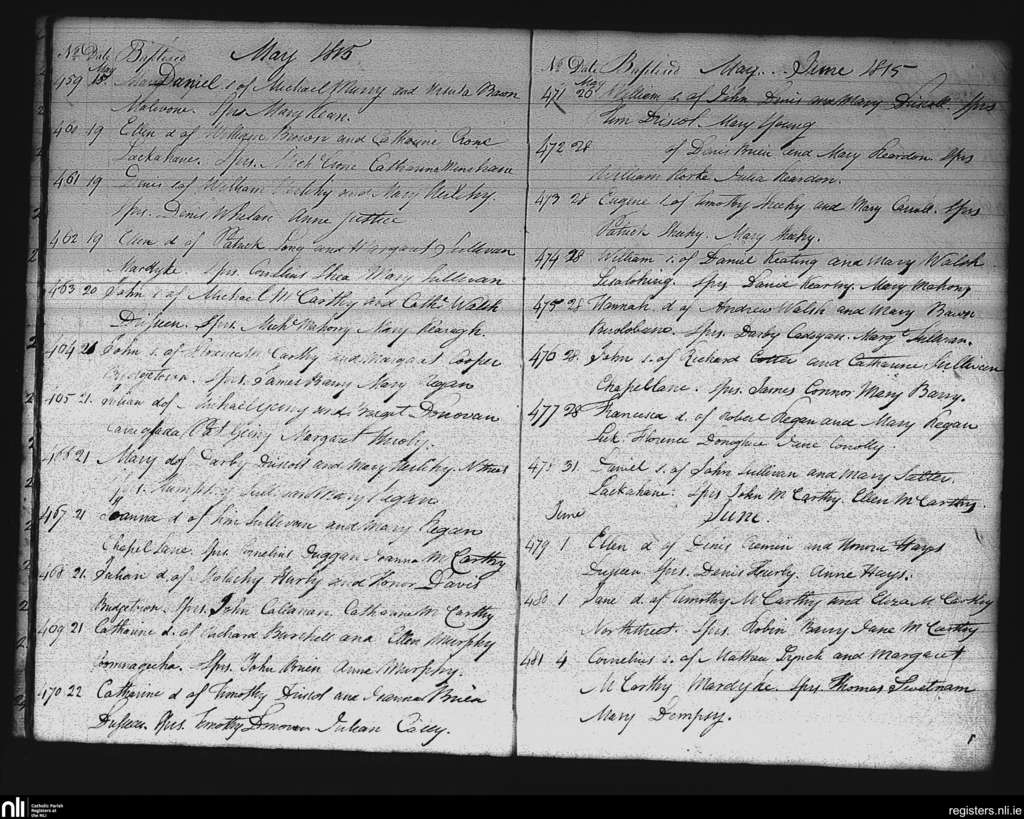 No. Date Baptised May 1815
459 May 15 Daniel s. of Michael Murry and Ursula Bawn
Sprs Mary Kean.
460 19 Ellen d of William Brown and Catherine Crone
Lackahane. Sprs. Mich Crone Catharine
461 19 Denis s of William and Mary
Sprs. Denis Whelan Anne Justice
462 19 Ellen d of Patrick Long and Margaret Sullivan
Mardyke. Sprs. Cornelius Shea Mary Sullivan
463 20 John s of Michael McCarthy and Cathe. Walsh
Dugueen. Sprs. Michl Mahony Mary Kearagh
464 21 John s. of Florence Mc Carthy and Margaret Cooper
Bridgetown. Sprs. James Barry Mary Regan
465 21. Julian d of Michael Geiny and Bregit Donovan
Pat Geiny Margaret Hurly.
466 21 Mary d of Darby Driscoll and Mary
and Mary Regan
467 21 Joanna d of Tim Sullivan and Mary Regan
Chapel Lane. Sprs. Cornelius Duggan Joanna McCarthy
468 21. Julian d. of Malachy Harly and Honor Davis
Bridgetown. Sprs. John Callanan. Catharine McCarthy
469 21 Catharine d. of Richard Burchell and Ellen Murphy
Sprs. John Bruen Anne Murphy.
470 22 Catharine d of Timothy Driscol and Joanna Brien
Sprs. Timothy Donovan Julian Casey.
No. Date Baptised May... June 1815
471 May 26 William s. of John Denis and Mary Driscoll. Sprs
Tim Driscol. Mary Young
472 28 of Denis Bruen and Mary Reardon. Sprs
William Rorke Julia Reardon.
473 28 Eugene s. of Timothy Sheehy and Mary Carroll. Sprs
Patrick Sheehy. Mary Sheehy.
474 28 William s. of Daniel Keating and Mary Walsh
Sprs. David Kearby. Mary Mahony
475 28 Hannah d. of Andrew Walsh and Mary Bawn
Sprs. Darby Cadogan. Mary Sullivan.
476 28. John s. of Richard Cotter and Catharine Sullivan
Chapel lane. Sprs. James Connor Mary Barry.
477 28 Francisca d. of Robert Regan and Mary Regan
Florence Donoghue Jane Conolly.
478 31. Daniel s. of John Sullivan and Mary Salter.
Lackahane. Sprs John McCarthy. Ellen McCarthy.
June June.
479 1 Ellen d of Denis Cremin and Honora Hays
Dugueen Sprs. Denis Hurly. Anne Hays.
480 1 Jane d. of Timothy McCarthy and Eliza McCarthy
North street. Sprs. Robin Barry Jane McCarthy
481 4 Cornelius s. of Mathew Lynch and Margaret
McCarthy Mardyke. Sprs. Thomas Swetnam
Mary Dempsy.
nli Catholic Parish
Registers at
the NLI
registers.nli.ie